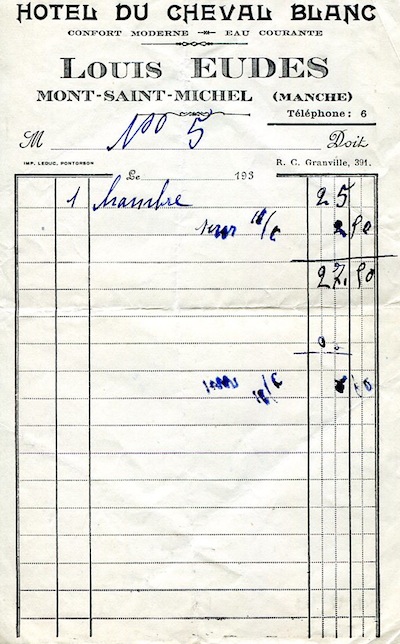 HOTEL DU CHEVAL BLANC
CONFORT MODERNE — EAU COURANTE
LOUIS EUDES
MONT-SAINT-MICHEL (MANCHE)
Téléphone: 6
M No 5 Doit
IMP. LEDUC, PONTORSON R. C. Granville, 391.
Le 193
1 Chambre 25
10/% 2 50
27.50
10/%